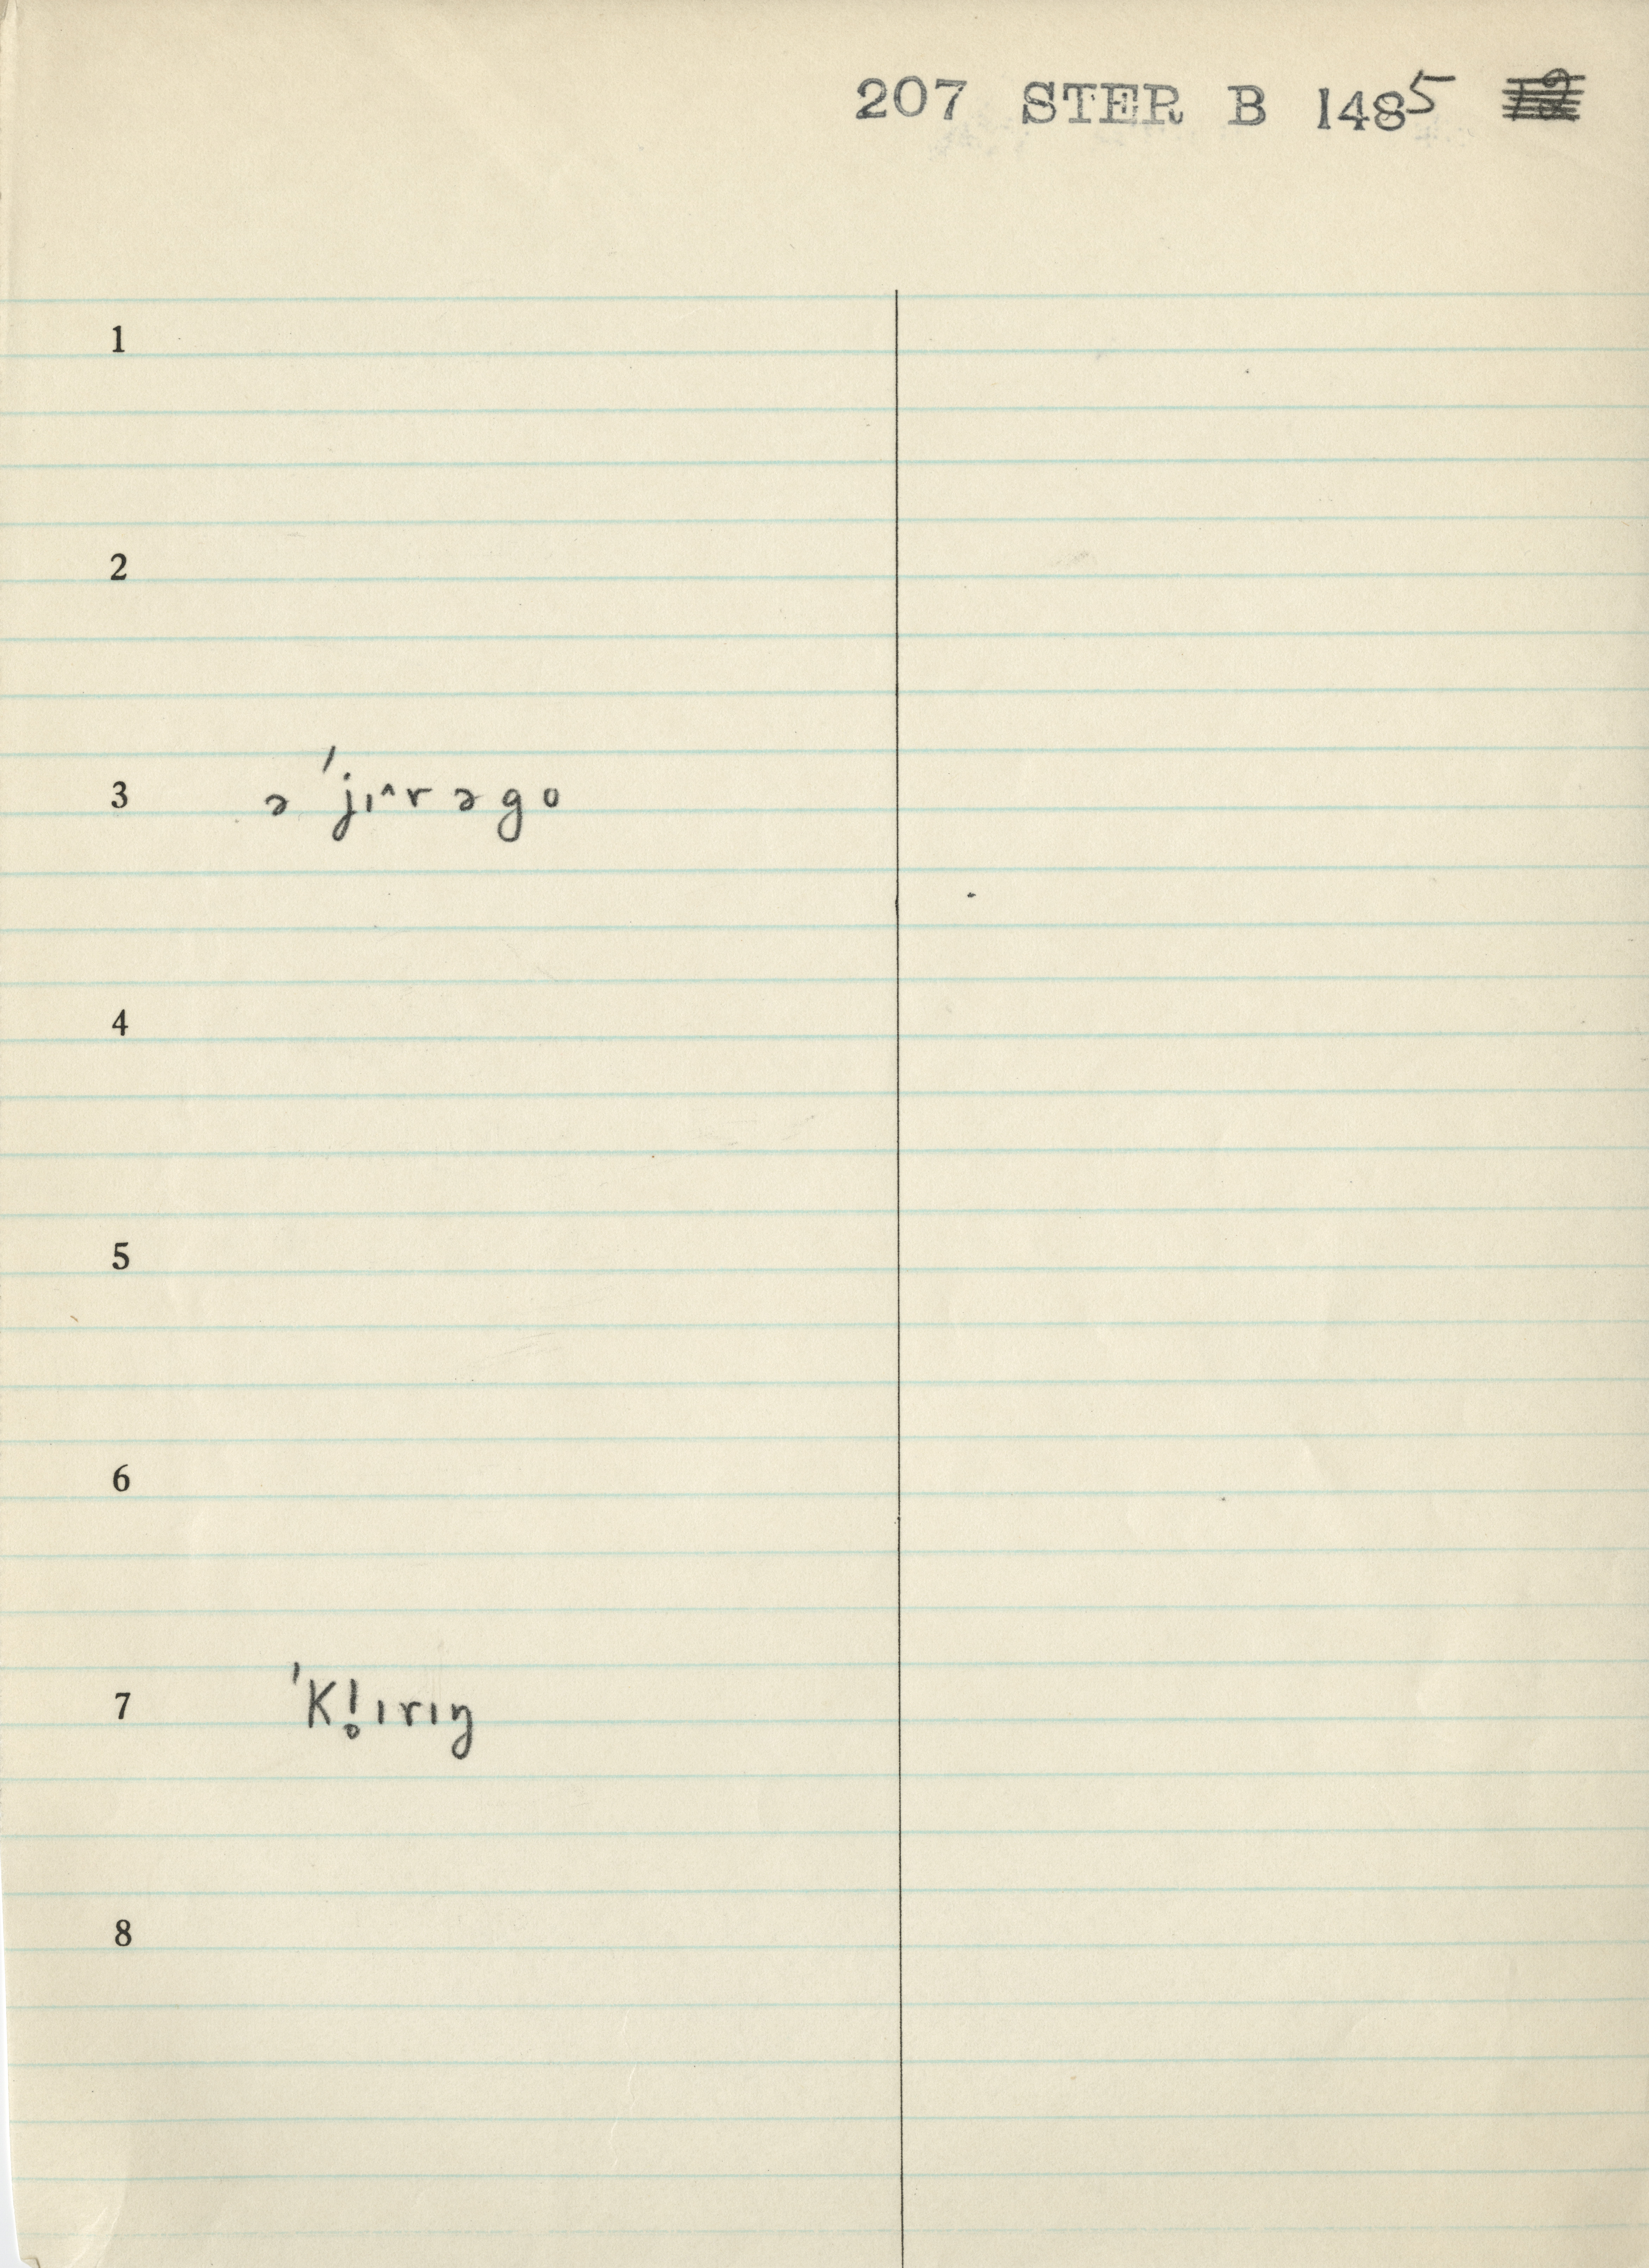 207 STER B 1485
1
2
3 ə ˈjɪ^rəgo
4
5
6
7 ˈK!̥ɪrɪŋ
8